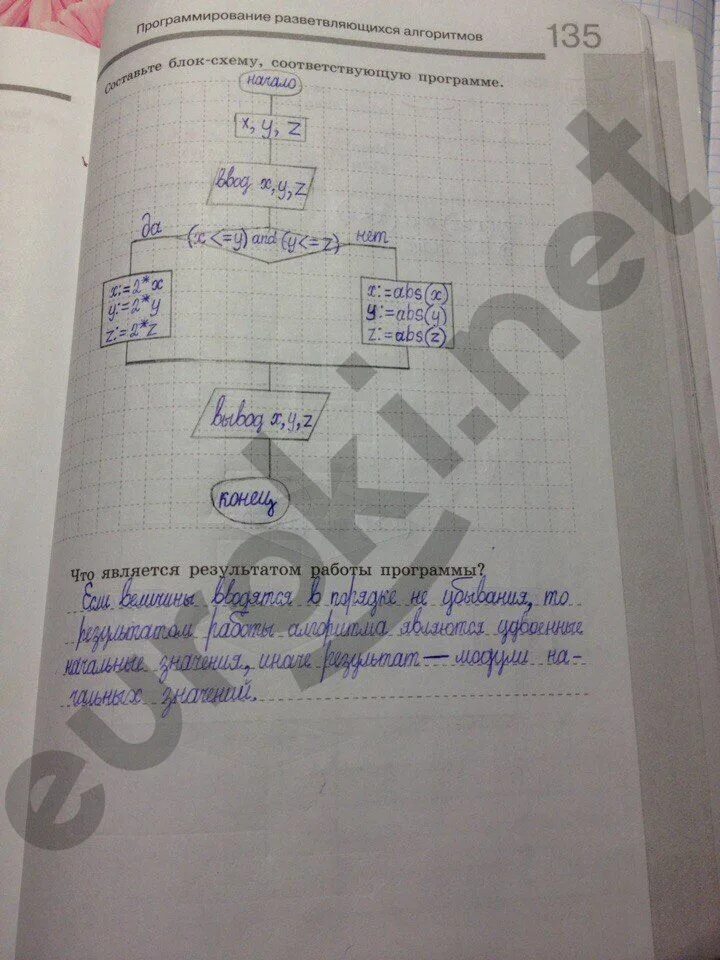 Программирование разветвляющихся алгоритмов 135
Составьте блок-схему, соответствующую программе.
начало
x, y, z
ввод x, y, z
да (x <= y) and (y <= z) нет
x:=2*x
y:=2*y
z:=2*z
x:=abs(x)
y:=abs(y)
z:=abs(z)
вывод x, y, z
конец
Что является результатом работы программы?
Если величины вводятся в порядке не убывания, то
результатом работы алгоритма являются удвоенные
начальные значения, иначе результат — модули на-
чальных значений.
euroki.net